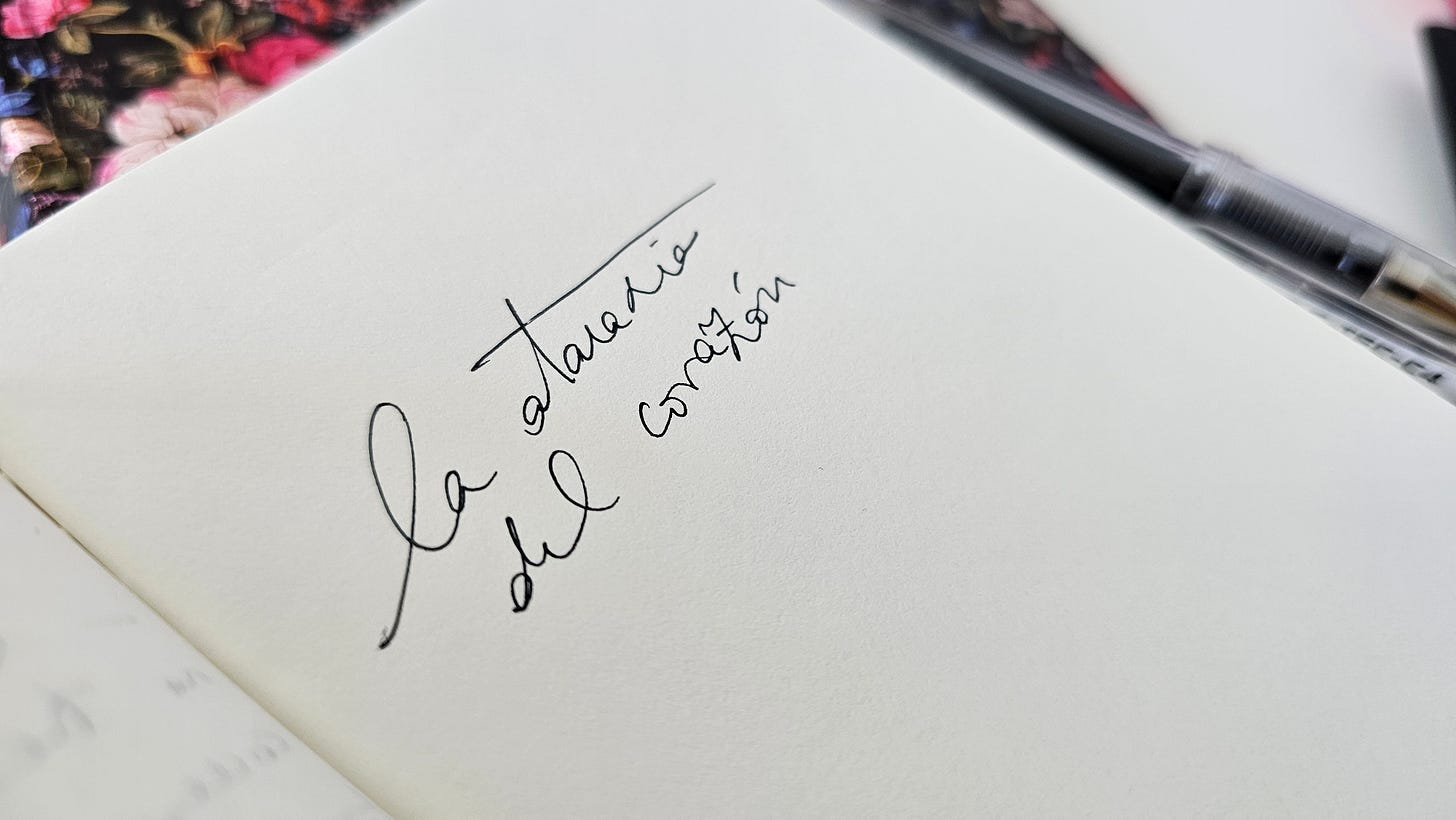 la ataraxia
del corazón